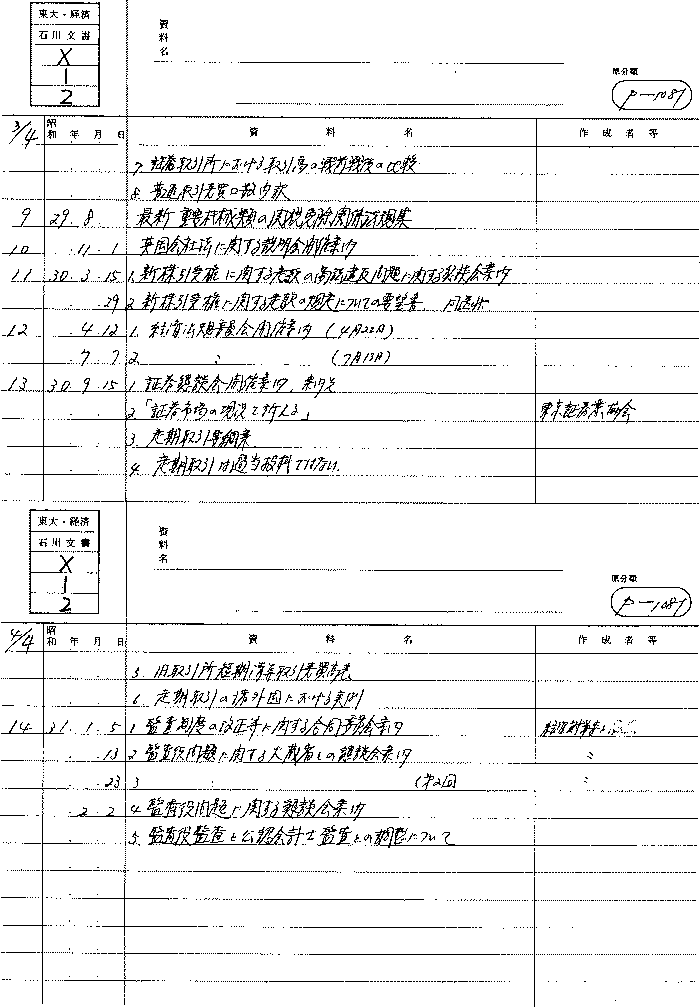 東大・経済
石川文書
X
1
2
資料名
原分類
P-1087
3/4 昭和 年 月 日 資 料 名 作 成 者 名 等
7. 証券取引所における取引高の戦前戦後の比較
8. 普通取引売買口数内訳
9 29. 8. 最新 重要機械類の関税免除関係法規集
10 . 11. 1 英国会社法に関する説明会開催案内
11 30. 3. 15 1. 新株引受権に関する定款の商法違反問題に関する懇談会案内
. 29 2. 新株引受権に関する定款の規定についての要望書
12 . 4. 12 1. 経済法規委員会開催案内 (4月22日)
7. 7 2. 〃 (7月13日)
13 30. 9. 15 1. 証券懇談会開催案内
2. 「証券市場の現況を訴える」 東京証券業協会
3. 定期取引要綱案
4. 定期取引は過当投機ではない
東大・経済
石川文書
X
1
2
資料名
原分類
P-1087
4/4 昭和 年 月 日 資 料 名 作 成 者 名 等
5. 旧取引所短期清算取引売買高表
6. 定期取引の諸外国における実例
14 31. 1. 5 1. 監査制度の改正等に関する合同委員会案内
. 13 2. 監査役問題に関する大蔵省との懇談会案内 〃
. 23 3. 〃 (第2回 〃
. 2. 2 4. 監査役問題に関する懇談会案内
5. 監査役監査と公認会計士監査との調整について